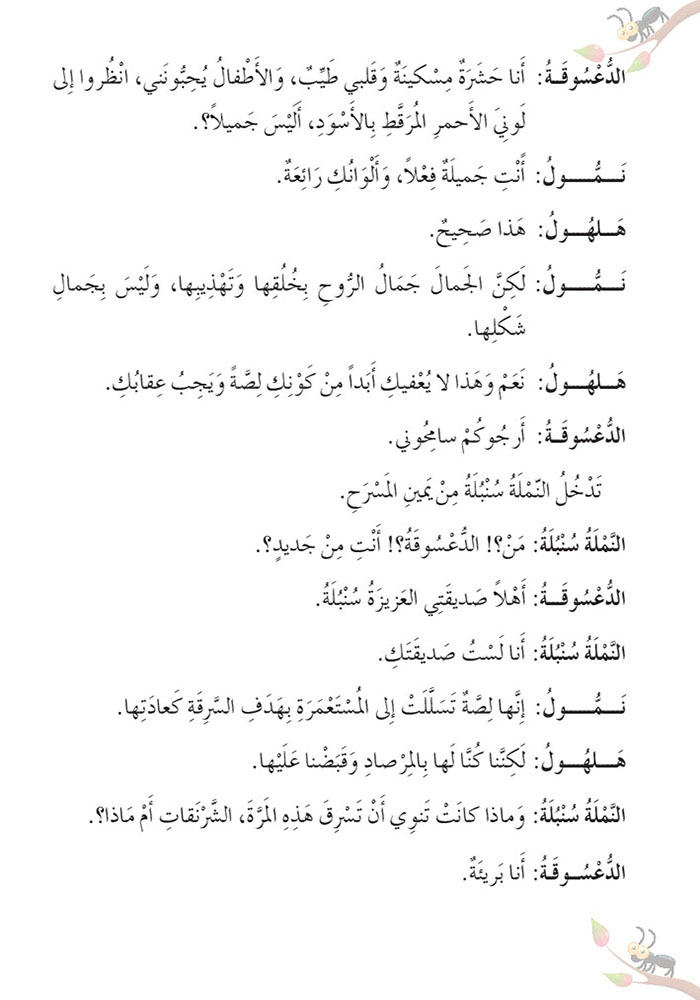 الدُّعْسُوقَـةُ: أَنا حَشَرَةٌ مِسْكينَةٌ وَقَلبي طَيِّبٌ، وَالأَطْفالُ يُحِبُّونَني، انْظُروا إلى
لَونِيَ الأَحمرِ المُرَقَّطِ بِالأَسْوَدِ، أَلَيْسَ جَميلاً؟.
نَـــمُّـــــولُ: أَنْتِ جَميلَةٌ فِعْلاً، وَأَلْوَانُكِ رَائِعَةٌ.
هَـــلهُـــولُ: هَذا صَحِيحٌ.
نَـــمُّـــــولُ: لَكِنَّ الجَمالَ جَمَالُ الرُّوحِ بِخُلُقِها وَتَهْذِيبِها، وَلَيْسَ بِجَمالِ
شَكْلِها.
هَـــلهُـــولُ: نَعَمْ وَهَذا لا يُعْفيكِ أَبَداً مِنْ كَوْنِكِ لِصَّةً وَيَجِبُ عِقابُكِ.
الدُّعْسُوقَـةُ: أَرجُوكُمْ سامِحُوني.
تَدْخُلُ النّمْلَةُ سُنْبُلَةُ مِنْ يَمينِ المَسْرَحِ.
النَّمْلَةُ سُنْبُلَةُ: مَنْ؟! الدُّعْسُوقَةُ؟! أَنْتِ مِنْ جَديدٍ؟.
الدُّعْسُوقَـةُ: أَهْلاً صَديقَتِي العَزيزَةُ سُنْبُلَةُ.
النَّمْلَةُ سُنْبُلَةُ: أَنا لَسْتُ صَديقَتَكِ.
نَـــمُّـــــولُ: إِنَّها لِصَّةٌ تَسَلَّلَتْ إلى المُسْتَعْمَرَةِ بِهَدَفِ السَّرِقَةِ كَعادَتِها.
هَـــلهُـــولُ: لَكِنَّنا كُنَّا لَها بِالمِرْصادِ وَقَبَضْنا عَلَيْها.
النَّمْلَةُ سُنْبُلَةُ: وَماذا كانَتْ تَنوِي أَنْ تَسْرِقَ هَذِهِ المَرَّةَ، الشَّرْنَقاتِ أَمْ مَاذا؟.
الدُّعْسُوقَـةُ: أَنا بَريئَةٌ.